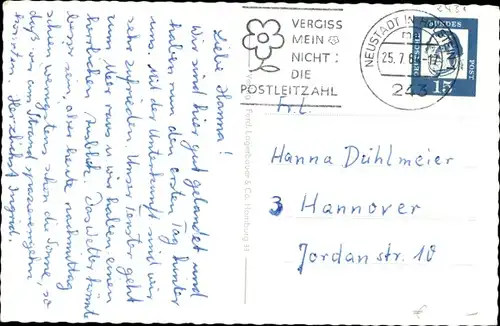 Liebe Hanna!
Wir sind hier gut gelandet und
haben nun den ersten Tag hinter
uns. Mit der Unterkunft sind wir
sehr zufrieden. Unser Fenster geht
zum Meer raus u. wir haben einen
herrlichen Ausblick. Das Wetter könnte
besser sein, aber heute nachmittag
schien wenigstens schon die Sonne, so
daß wir am Strand spazierengehen
konnten. Herzlichst Ingrid.
VERGISS
MEIN
NICHT:
DIE
POSTLEITZAHL
NEUSTADT IN HOLSTEIN
25.7.64-17
243
DEUTSCHE BUNDESPOST
15
Frl.
Hanna Dühlmeier
3 Hannover
Jordanstr. 10
& Co. Hamburg 13